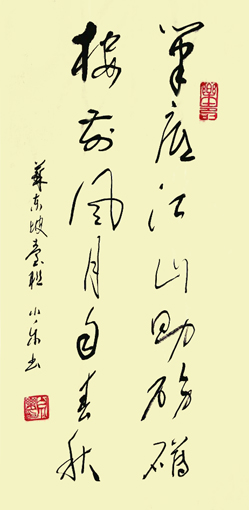 筆底江山助磅礴
楼前风月自春秋
蘇东坡臺联 小乐书